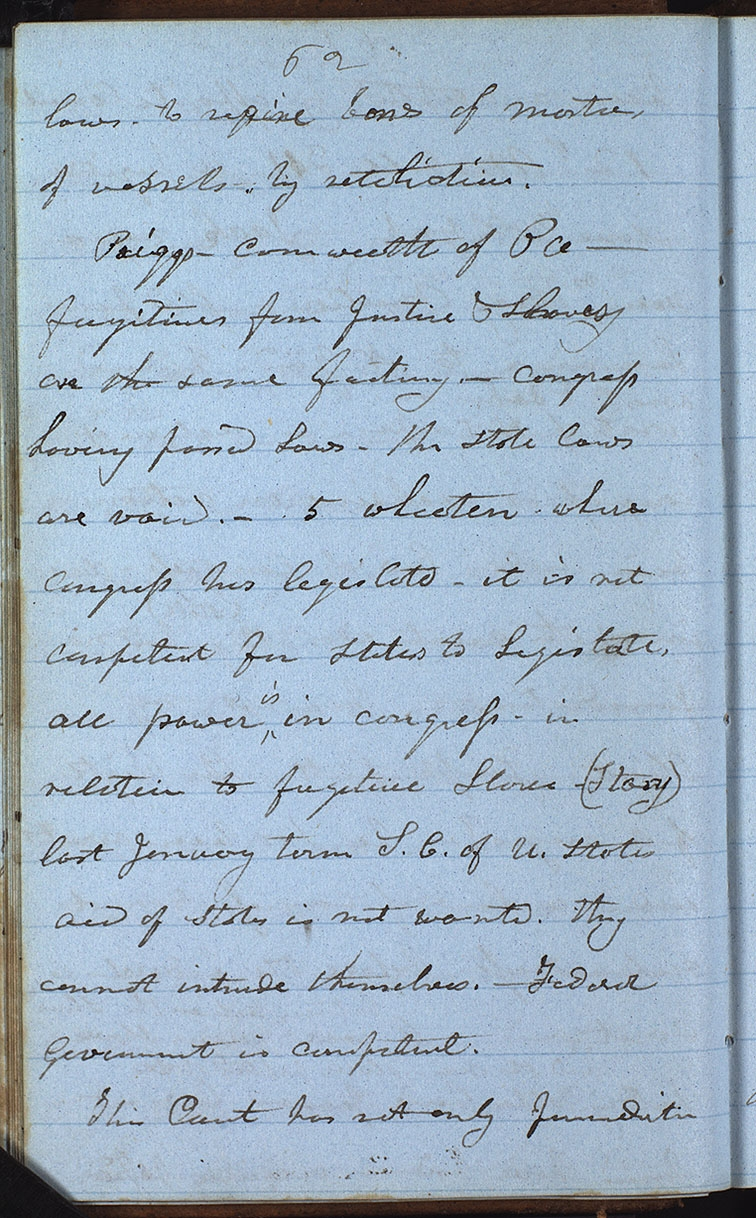 62
laws. to require bonds of master,
of vessels. by retaliation.
Prigg - comwealth of Pa —
fugitives from Justice & Slaves
are the same footing. — congress
having passed Laws - the State Laws
are void. — 5 wheaten where
congress has legislatd - it is not
competent for States to Legislate.
all power is in congress - in
relation to fugitive Slaves (Story)
last January term S. C. of U. States
aid of States is not wantd. they
cannot intrude themselves. — Federal
Government is competent.
This Court has not only Jurisdictn